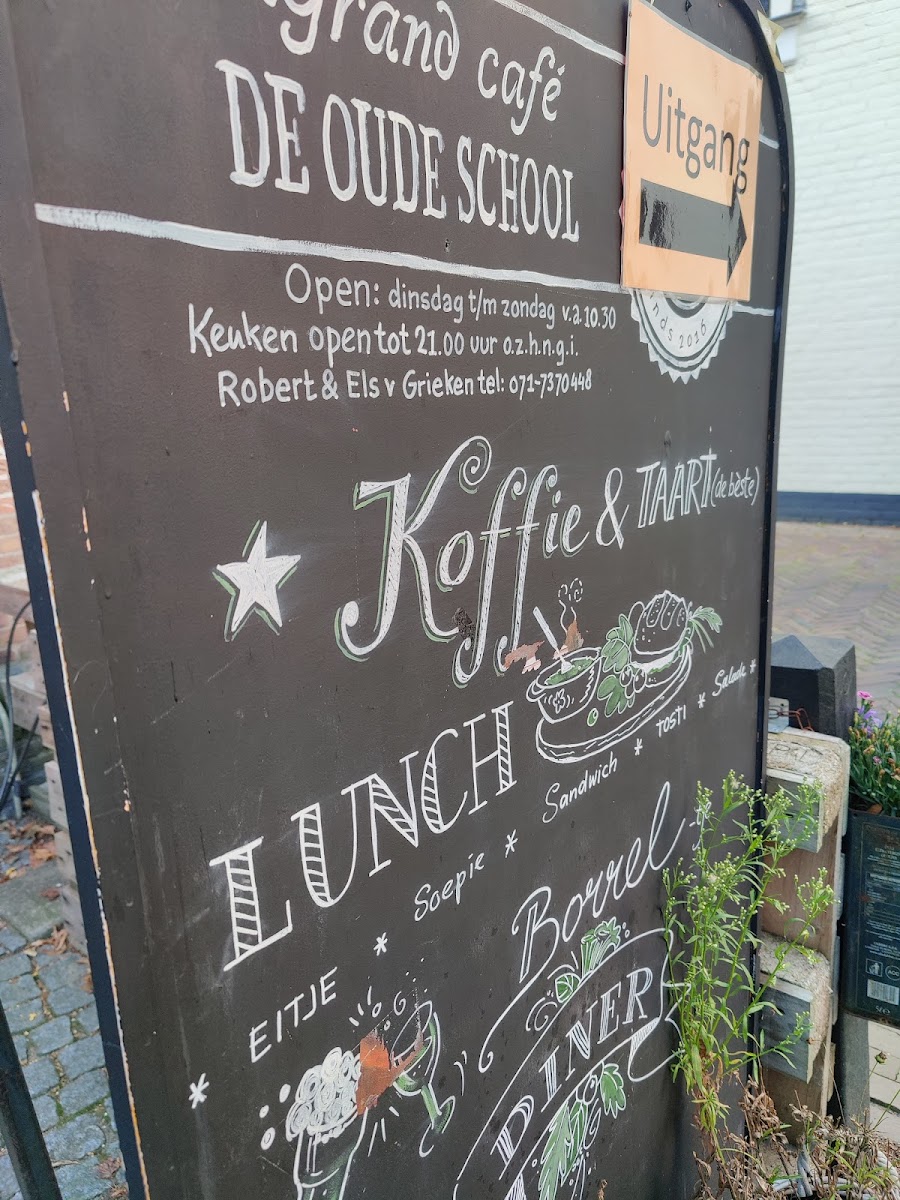 grand café
DE OUDE SCHOOL
Uitgang
Open: dinsdag t/m zondag v.a. 10.30
Keuken open tot 21.00 uur o.z.h.n.g.i.
Robert & Els v Grieken tel: 071-7370448
2016
Koffie & TAART (de bèste)
LUNCH
* EITJE * Soepie * Sandwich * TOSTI * Salade *
Borrel
DINER